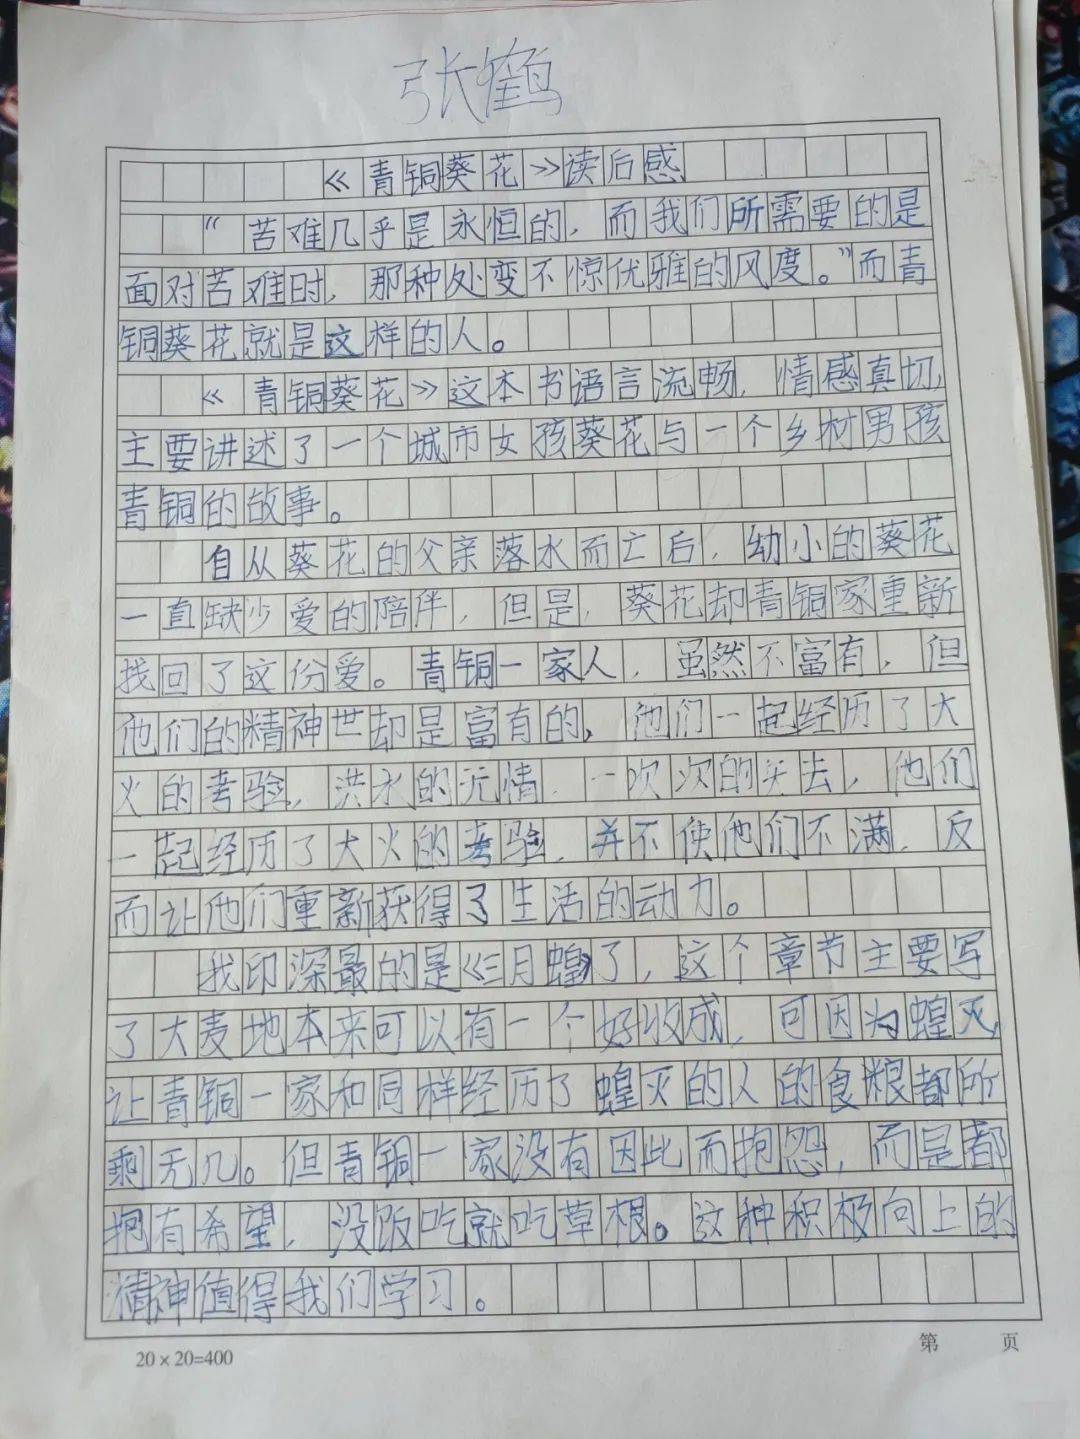 张鹤
《青铜葵花》读后感
“苦难几乎是永恒的，而我们所需要的是
面对苦难时，那种处变不惊优雅的风度。”而青
铜葵花就是这样的人。
《青铜葵花》这本书语言流畅，情感真切，
主要讲述了一个城市女孩葵花与一个乡村男孩
青铜的故事。
自从葵花的父亲落水而亡后，幼小的葵花
一直缺少爱的陪伴，但是，葵花却青铜家重新
找回了这份爱。青铜一家人，虽然不富有，但
他们的精神世却是富有的，他们一起经历了大
火的考验，洪水的无情，一次次的失去，他们
一起经历了大火的考验，并不使他们不满，反
而让他们重新获得了生活的动力。
我印深最的是《三月蝗》了，这个章节主要写
了大麦地本来可以有一个好收成，可因为蝗灭，
让青铜一家和同样经历了蝗灭的人的食粮都所
剩无几。但青铜一家没有因此而抱怨，而是都
抱有希望，没饭吃就吃草根。这种积极向上的
精神值得我们学习。
20×20=400
第 页